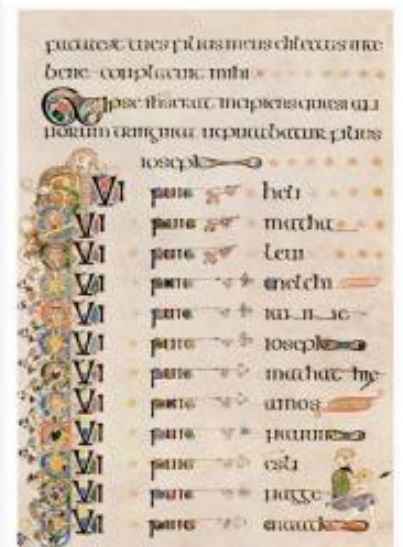 facta est tu es filius meus dilectus in te
bene conplacuit mihi
ipse ihs erat incipiens quasi an
norum triginta ut putabatur filius
ioseph
QVI fuit heli
QVI fuit matha
QVI fuit leui
QVI fuit melchi
QVI fuit iannae
QVI fuit ioseph
QVI fuit mathathie
QVI fuit amos
QVI fuit
QVI fuit esli
QVI fuit nagge
QVI fuit